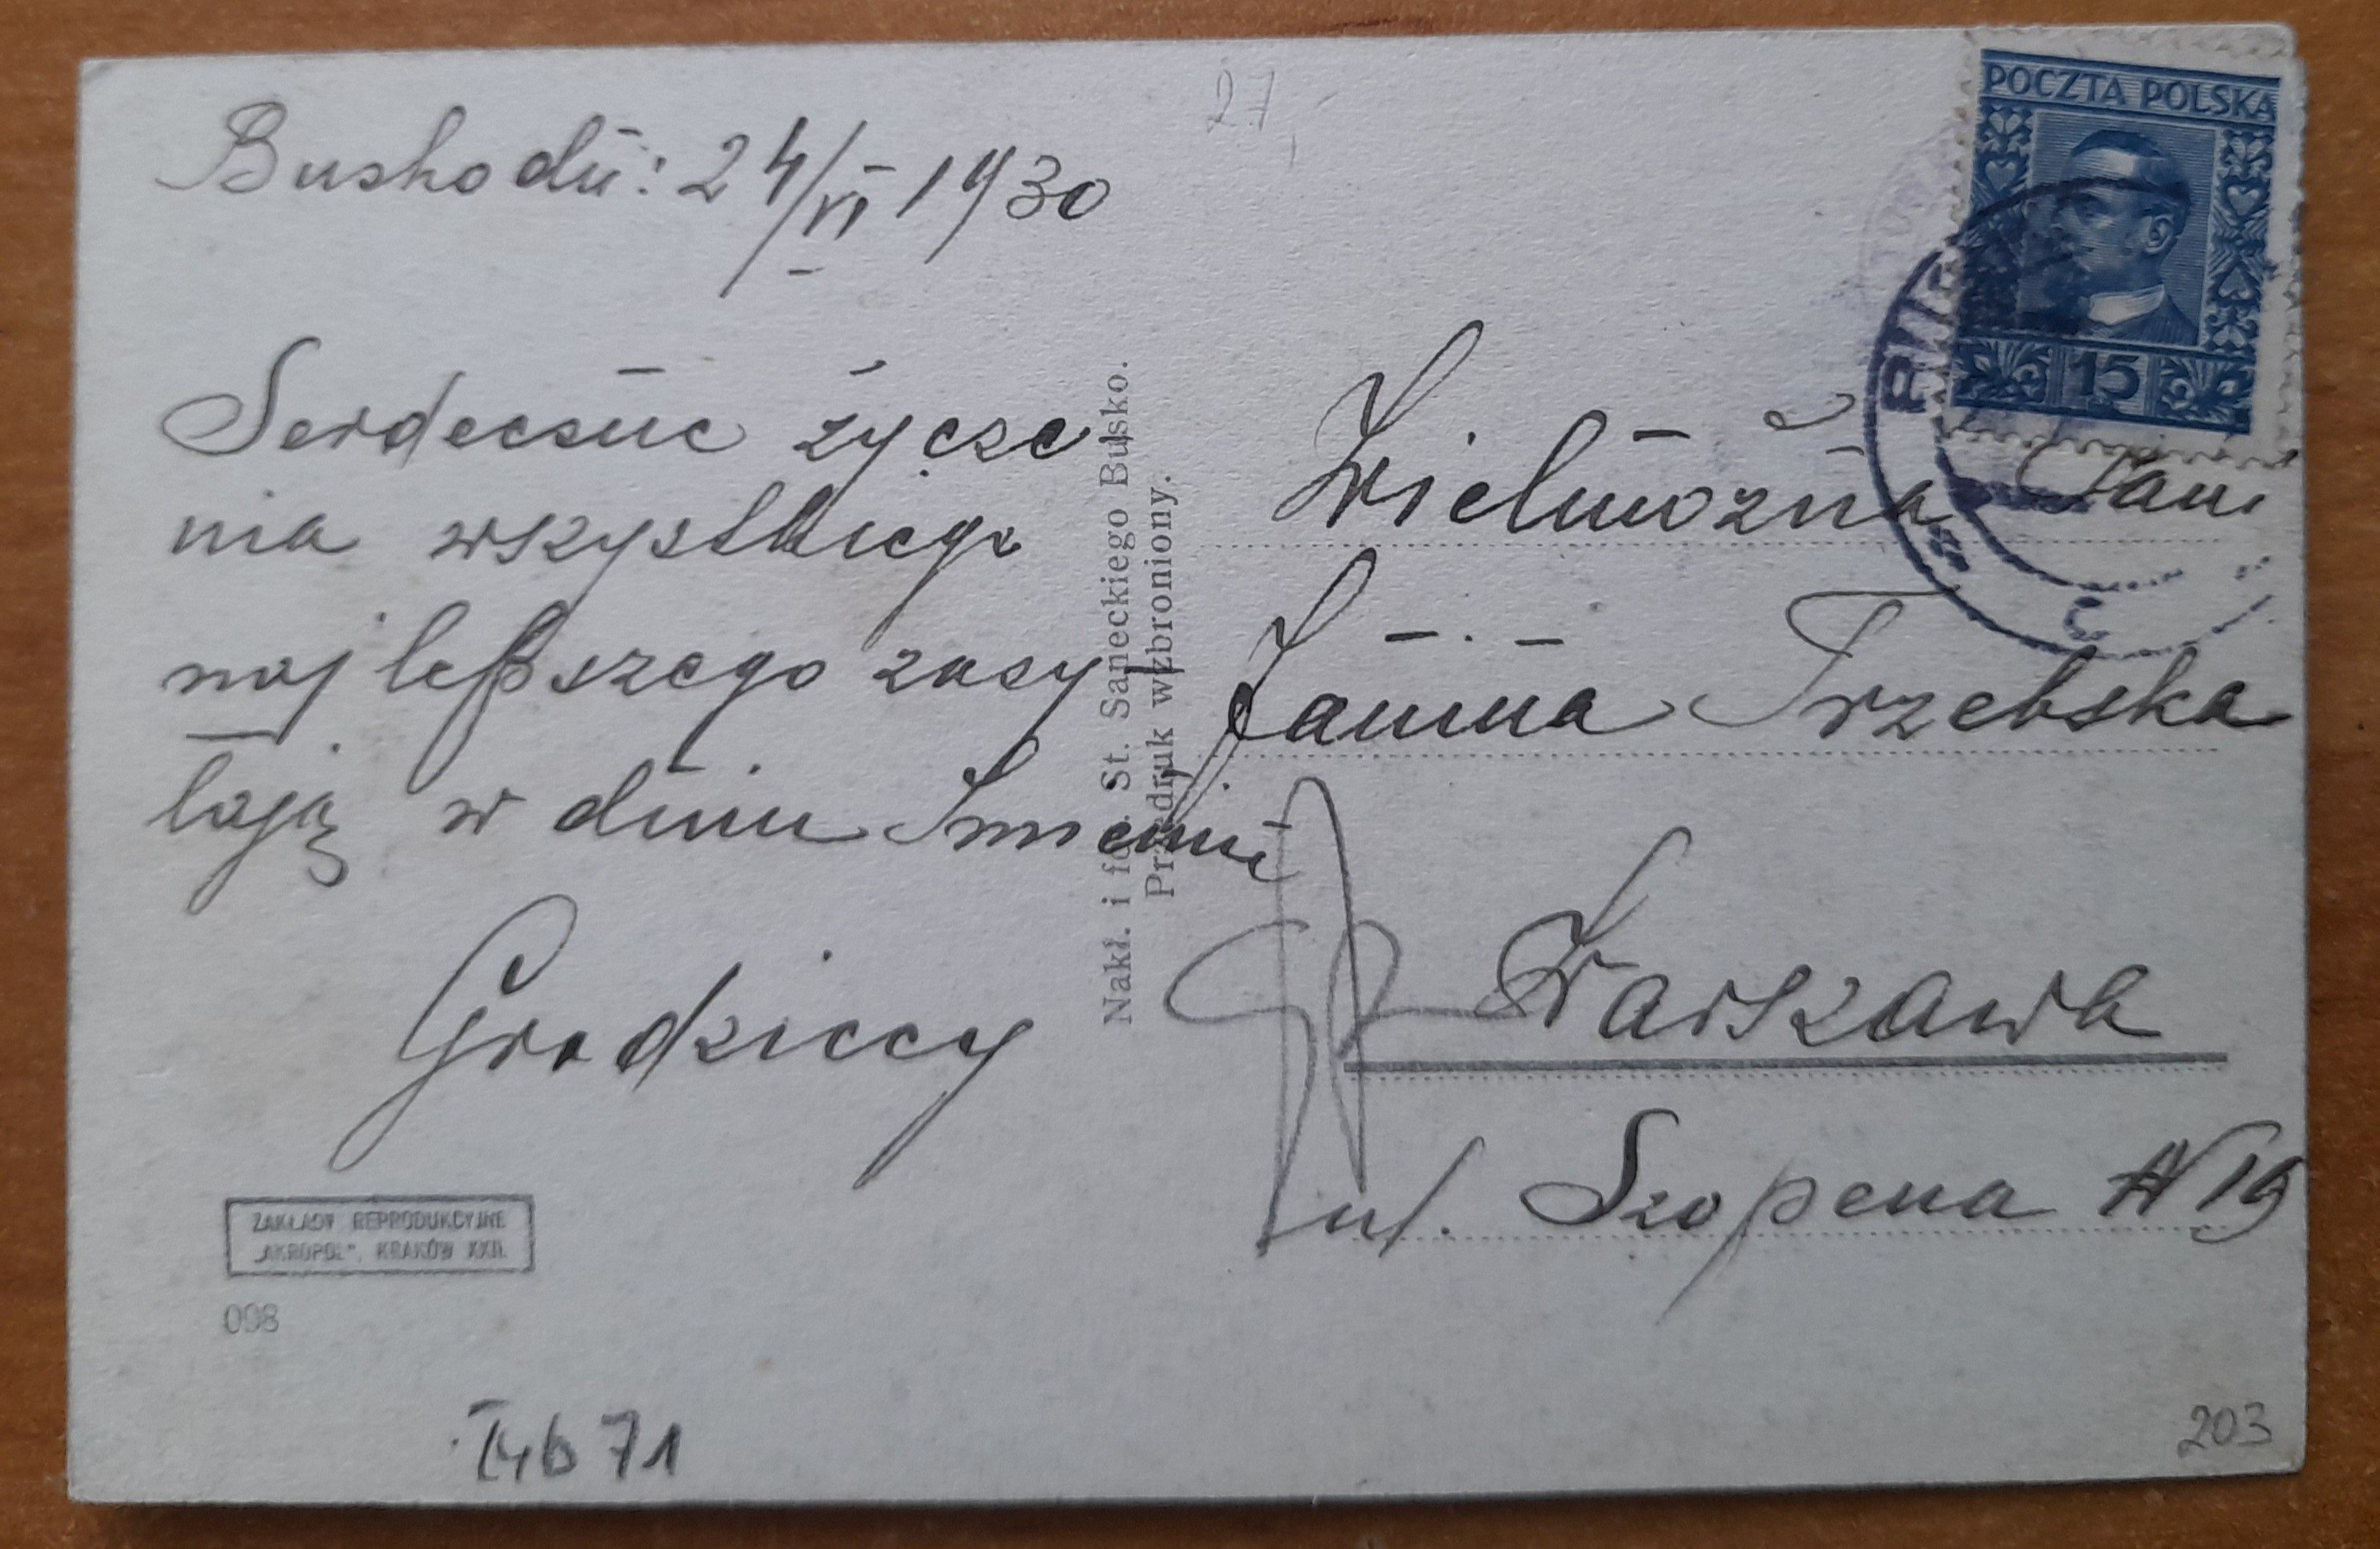 27
Busko dń: 24/VI 1930
Serdeczne życze
nia wszystkiego
najlepszego zasy
łają w dniu Imienin
Grodziccy
ZAKŁADY REPRODUKCYJNE
„AKROPOL", KRAKÓW XXII.
008
71
Nakł. i fot. St. Saneckiego Busko.
Przedruk wzbroniony.
POCZTA POLSKA
15
Wielmożna Pani
Janina Trzebska
Warszawa
ul. Szopena N 19
203